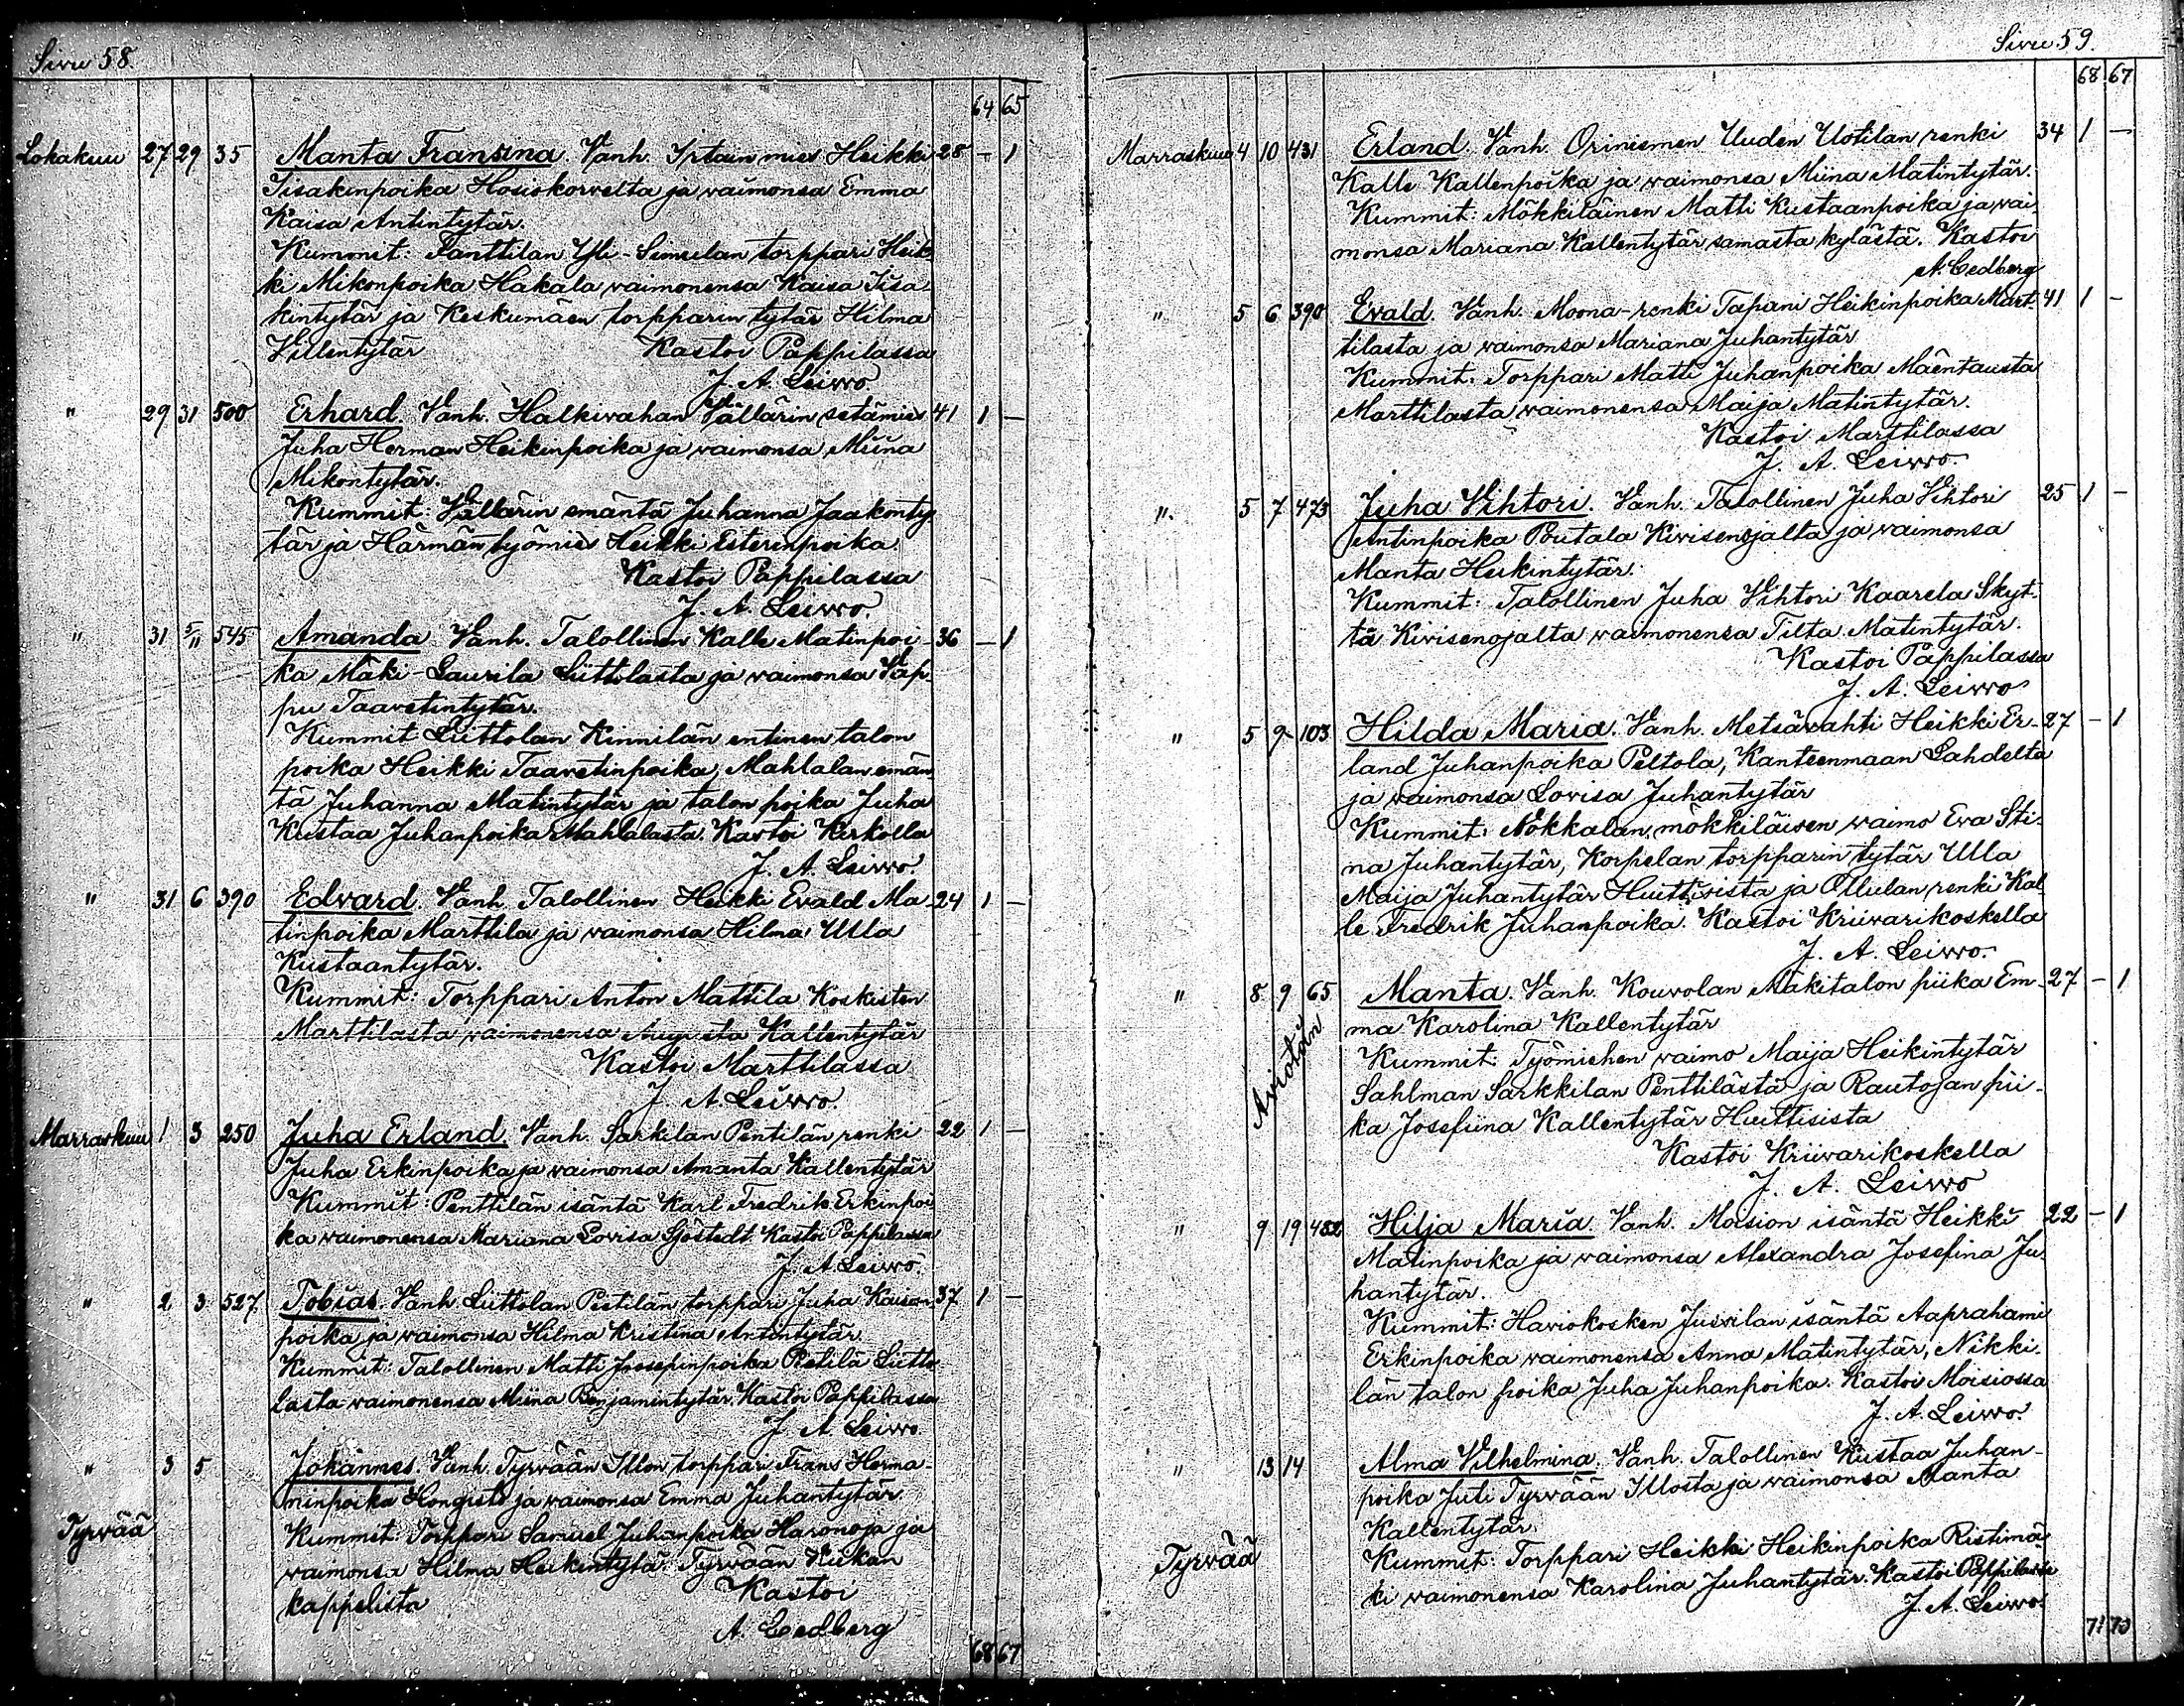 Sivu 58.
64 65
Lokakuu 27 29 35 Manta Fransina. Vanh. Irtain mies Heikki 28 – 1
Iisakinpoika Hosiokorvelta ja vaimonsa Emma
Kaisa Antintytär.
Kummit: Fanttilan Yli-Simulan torppari Heik-
ki Mikonpoika Hakala vaimonensa Kaisa Iisa-
kintytär ja Keskumäen torpparin tytär Hilma
Villentytär Kastoi Pappilassa
J. A. Leivvo
" 29 31 500 Erhard. Vanh. Halkivahan Vällärin setämies 41 1 –
Juha Herman Heikinpoika ja vaimonsa Miina
Mikontytär.
Kummit: Vällärin emäntä Juhanna Jaakonty-
tär ja Härmän työmies Heikki Esterinpoika.
Kastoi Pappilassa
J. A. Leivvo.
" 31 5/11 545 Amanda. Vanh. Talollinen Kalle Matinpoi- 36 – 1
ka Mäki-Laurila Liuttilasta ja vaimonsa Vap-
pu Taavetintytär.
Kummit Liuttolan Kinnilän entinen talon
poika Heikki Taavetinpoika, Mahlalan emän-
tä Juhanna Matintytär ja talon poika Juha
Kustaa Juhanpoika Mahlalasta. Kastoi Kirkolla
J. A. Leivvo.
" 31 6 390 Edvard. Vanh. Talollinen Heikki Evald Ma- 24 1 –
tinpoika Marttila ja vaimonsa Hilma Ulla
Kustaantytär.
Kummit: Torppari Anton Mattila Koskisten
Marttilasta vaimonensa Augusta Kallentytär
Kastoi Marttilassa
J. A. Leivvo.
Marraskuu 1 3 250 Juha Erland. Vanh. Sarkilan Pentilän renki 22 1 –
Juha Erkinpoika ja vaimonsa Amanta Kallentytär
Kummit: Penttilän isäntä Karl Fredrik Erkinpoi-
ka vaimonensa Mariana Lovisa Sjöstedt Kastoi Pappilassa
J. A. Leivvo.
" 2 3 527 Tobias. Vanh. Liuttolan Pietilän torppari Juha Kaisan- 37 1 –
poika ja vaimonsa Hilma Kristina Antintytär.
Kummit: Talollinen Matti Joosefinpoika Pietilä Liutto-
lasta vaimonensa Miina Benjamintytär. Kastoi Pappilassa
J. A. Leivvo
" 3 5 Johannes. Vanh. Tyrvään Illon torppari Frans Herma-
ninpoika Hongisto ja vaimonsa Emma Juhantytär.
Tyrvää Kummit: Torppari Samuel Juhanpoika Haronoja ja
vaimonsa Hilma Heikintytär Tyrvään Kiikan
kappelista Kastoi
A. Cedberg
68 67
Sivu 59.
68 67
Marraskuu 4 10 431 Erland. Vanh. Orinismen Uuden Uotilan renki 34 1 –
Kalle Kallenpoika ja vaimonsa Miina Matintytär.
Kummit: Mökkiläinen Matti Kustaanpoika ja vai-
monsa Mariana Kallentytär samasta kylästä. Kastoi
A. Cedberg
" 5 6 390 Evald. Vanh. Moona-renki Tapani Heikinpoika Mart- 41 1 –
tilasta ja vaimonsa Mariana Juhantytär
Kummit: Torppari Matti Juhanpoika Mäentausta
Marttilasta vaimonensa Maija Matintytär.
Kastoi Marttilassa
J. A. Leivvo.
" 5 7 473 Juha Vihtori. Vanh. Talollinen Juha Vihtori 25 1 –
Antinpoika Poutala Kivisenojalta ja vaimonsa
Manta Heikintytär.
Kummit: Talollinen Juha Vihtori Kaarela Skyt-
tä Kivisenojalta vaimonensa Tilta Matintytär.
Kastoi Pappilassa
J. A. Leivvo
" 5 9 103 Hilda Maria. Vanh. Metsävahti Heikki Er- 27 – 1
land Juhanpoika Peltola, Kanteenmaan Lahdelta
ja vaimonsa Lovisa Juhantytär
Kummit: Nökkalan mökkiläisen vaimo Eva Sti-
na Juhantytär, Korpelan torpparin tytär Ulla
Maija Juhantytär Huittisista ja Ollulan renki Kal-
le Fredrik Juhanpoika. Kastoi Kriivarikoskella
J. A. Leivvo.
" 8 9 65 Manta. Vanh. Kouvolan Mäkitalon piika Em- 27 – 1
Aviotön
ma Karolina Kallentytär
Kummit: Työmiehen vaimo Maija Heikintytär
Sahlman Sarkkilan Penttilästä ja Rautojan pii-
ka Josefiina Kallentytär Huittisista
Kastoi Kriivarikoskella
J. A. Leivvo
" 9 19 482 Hilja Maria. Vanh. Moision isäntä Heikki 22 – 1
Matinpoika ja vaimonsa Alexandra Josefina Ju-
hantytär.
Kummit: Haviokosken Jussilan isäntä Aaprahami
Erkinpoika vaimonensa Anna Matintytär, Nikki-
län talon poika Juha Juhanpoika. Kastoi Moisiossa
J. A. Leivvo.
" 13 14 Alma Vilhelmina. Vanh. Talollinen Kustaa Juhan-
poika Juti Tyrvään Illosta ja vaimonsa Manta
Kallentytär.
Tyrvää Kummit: Torppari Heikki Heikinpoika Ristimä-
ki vaimonensa Karolina Juhantytär. Kastoi Pappilassa
J. A. Leivvo.
71 70